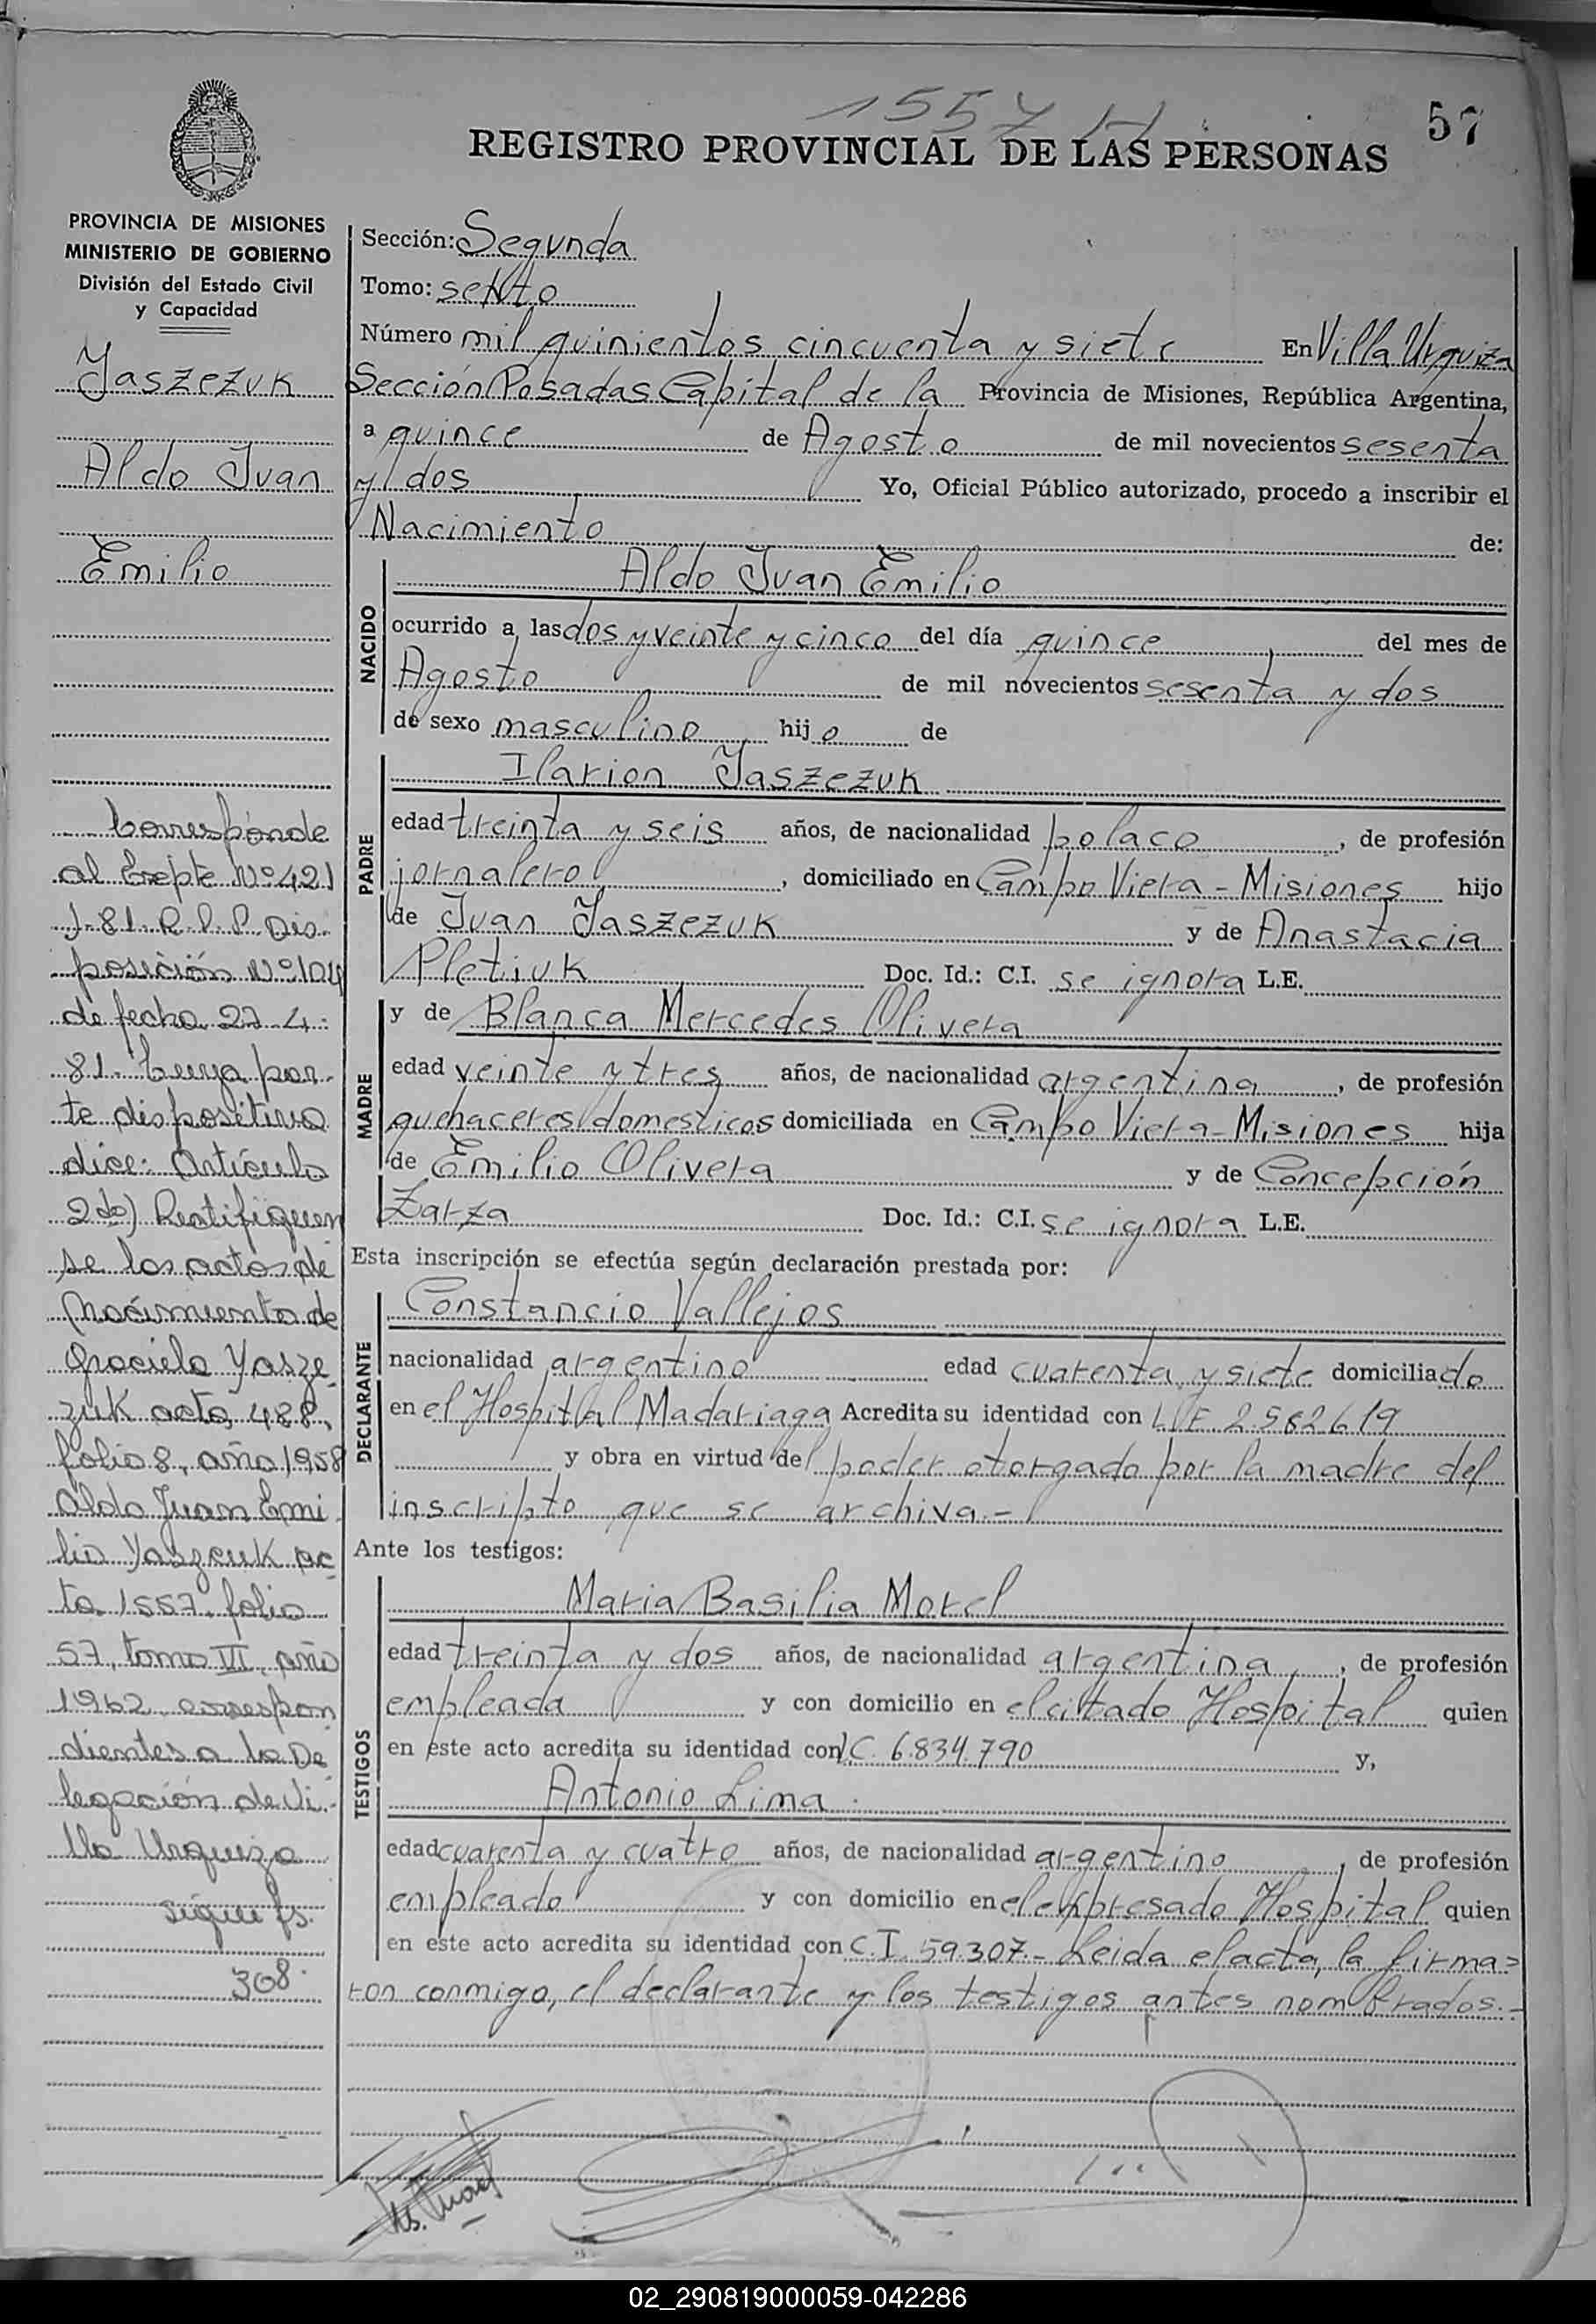 1557 H
57
REGISTRO PROVINCIAL DE LAS PERSONAS
PROVINCIA DE MISIONES
MINISTERIO DE GOBIERNO
División del Estado Civil
y Capacidad
Jaszezuk
Aldo Juan
Emilio
Corresponde
al Expte Nº 421
J-81. R.P.P. Dis-
posición Nº 104
de fecha 27-4-
81. Cuya par-
te dispositiva
dice: Artículo
2do) Rectifiquen
se las actas de
Nacimiento de
Graciela Yasze
zuk acta 488,
folio 8, año 1958
Aldo Juan Emi
lio Yaszcuk ac
ta 1557, folio
57, tomo VI, año
1962 correspon
dientes a la De
legación de Vi-
lla Urquiza
sigue fs.
308.
Sección: Segunda
Tomo: sexto
Número mil quinientos cincuenta y siete En Villa Urquiza
Sección Posadas Capital de la Provincia de Misiones, República Argentina,
a quince de Agosto de mil novecientos sesenta
y dos Yo, Oficial Público autorizado, procedo a inscribir el
Nacimiento de:
NACIDO
Aldo Juan Emilio
ocurrido a las dos y veinte y cinco del día quince del mes de
Agosto de mil novecientos sesenta y dos
de sexo masculino hijo de
PADRE
Ilarion Jaszezuk
edad treinta y seis años, de nacionalidad polaco, de profesión
jornalero, domiciliado en Campo Viera - Misiones hijo
de Juan Jaszezuk y de Anastacia
Pletiuk Doc. Id.: C.I. se ignora L.E.
MADRE
y de Blanca Mercedes Olivera
edad veinte y tres años, de nacionalidad argentina, de profesión
quehaceres domesticos domiciliada en Campo Viera - Misiones hija
de Emilio Olivera y de Concepción
Zarza Doc. Id.: C.I. se ignora L.E.
Esta inscripción se efectúa según declaración prestada por:
DECLARANTE
Constancio Vallejos
nacionalidad argentino edad cuarenta y siete domiciliado
en el Hospital Madariaga Acredita su identidad con L.E. 2.582.619
y obra en virtud del poder otorgado por la madre del
inscripto que se archiva.-
Ante los testigos:
TESTIGOS
Maria Basilia Morel
edad treinta y dos años, de nacionalidad argentina, de profesión
empleada y con domicilio en el citado Hospital quien
en este acto acredita su identidad con L.C. 6.834.790 y,
Antonio Lima
edad cuarenta y cuatro años, de nacionalidad argentino, de profesión
empleado y con domicilio en el expresado Hospital quien
en este acto acredita su identidad con C.I. 59.307.- Leida el acta, la firma=
ron conmigo, el declarante y los testigos antes nombrados.-
02_290819000059-042286